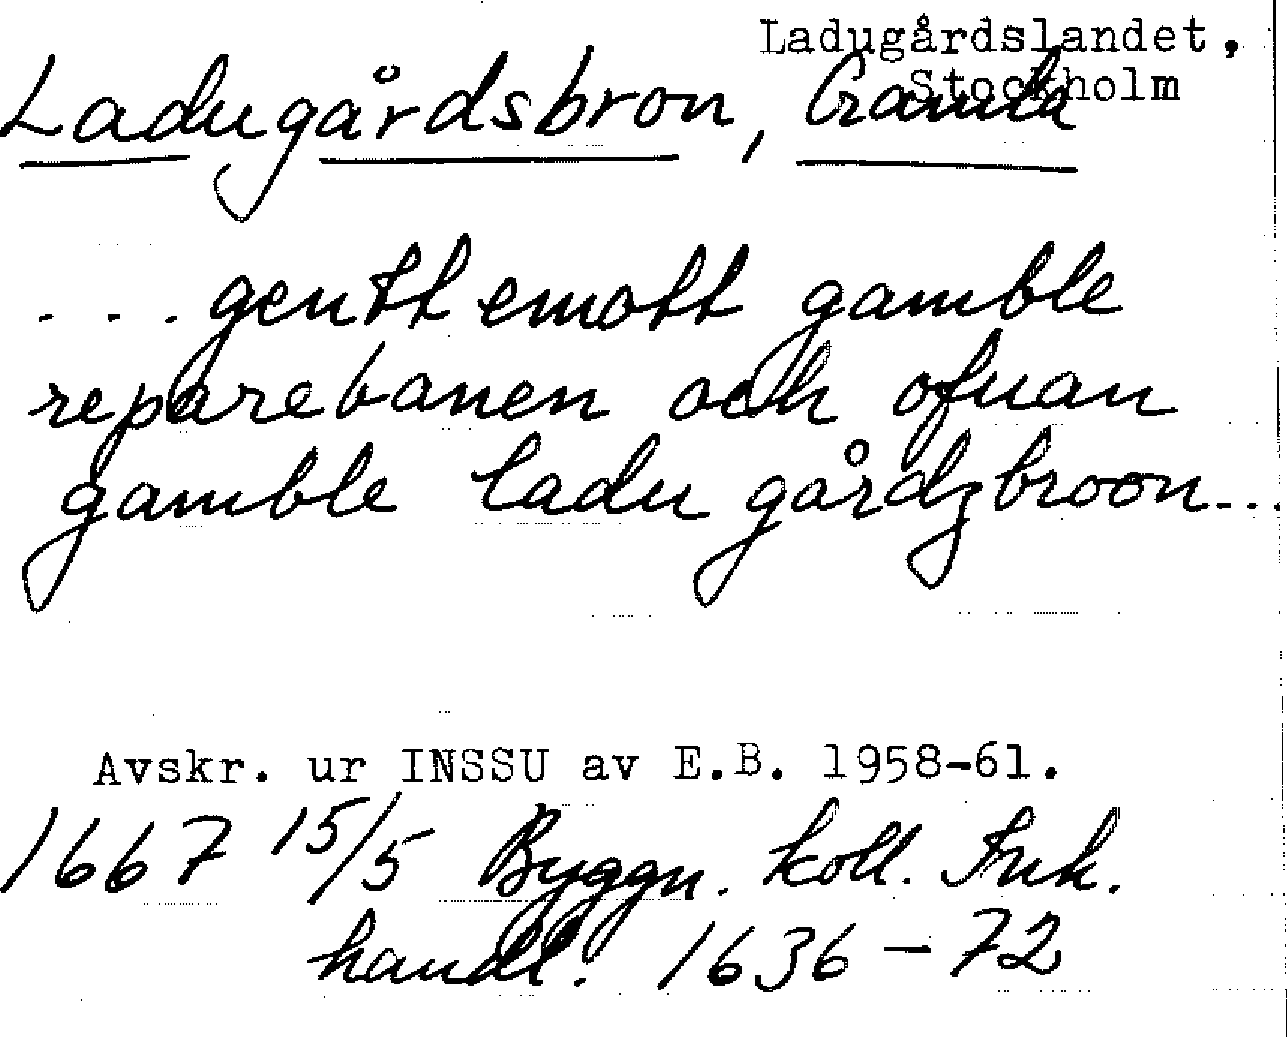 Ladugårdslandet,
Stockholm
Ladugårdsbron, Gamla
. . . gentt emott gamble
reparebanen och ofuan
gamble ladu gårdzbroon...
Avskr. ur INSSU av E.B. 1958-61.
1667 15/5 Byggn. koll. Ink.
handl. 1636-72